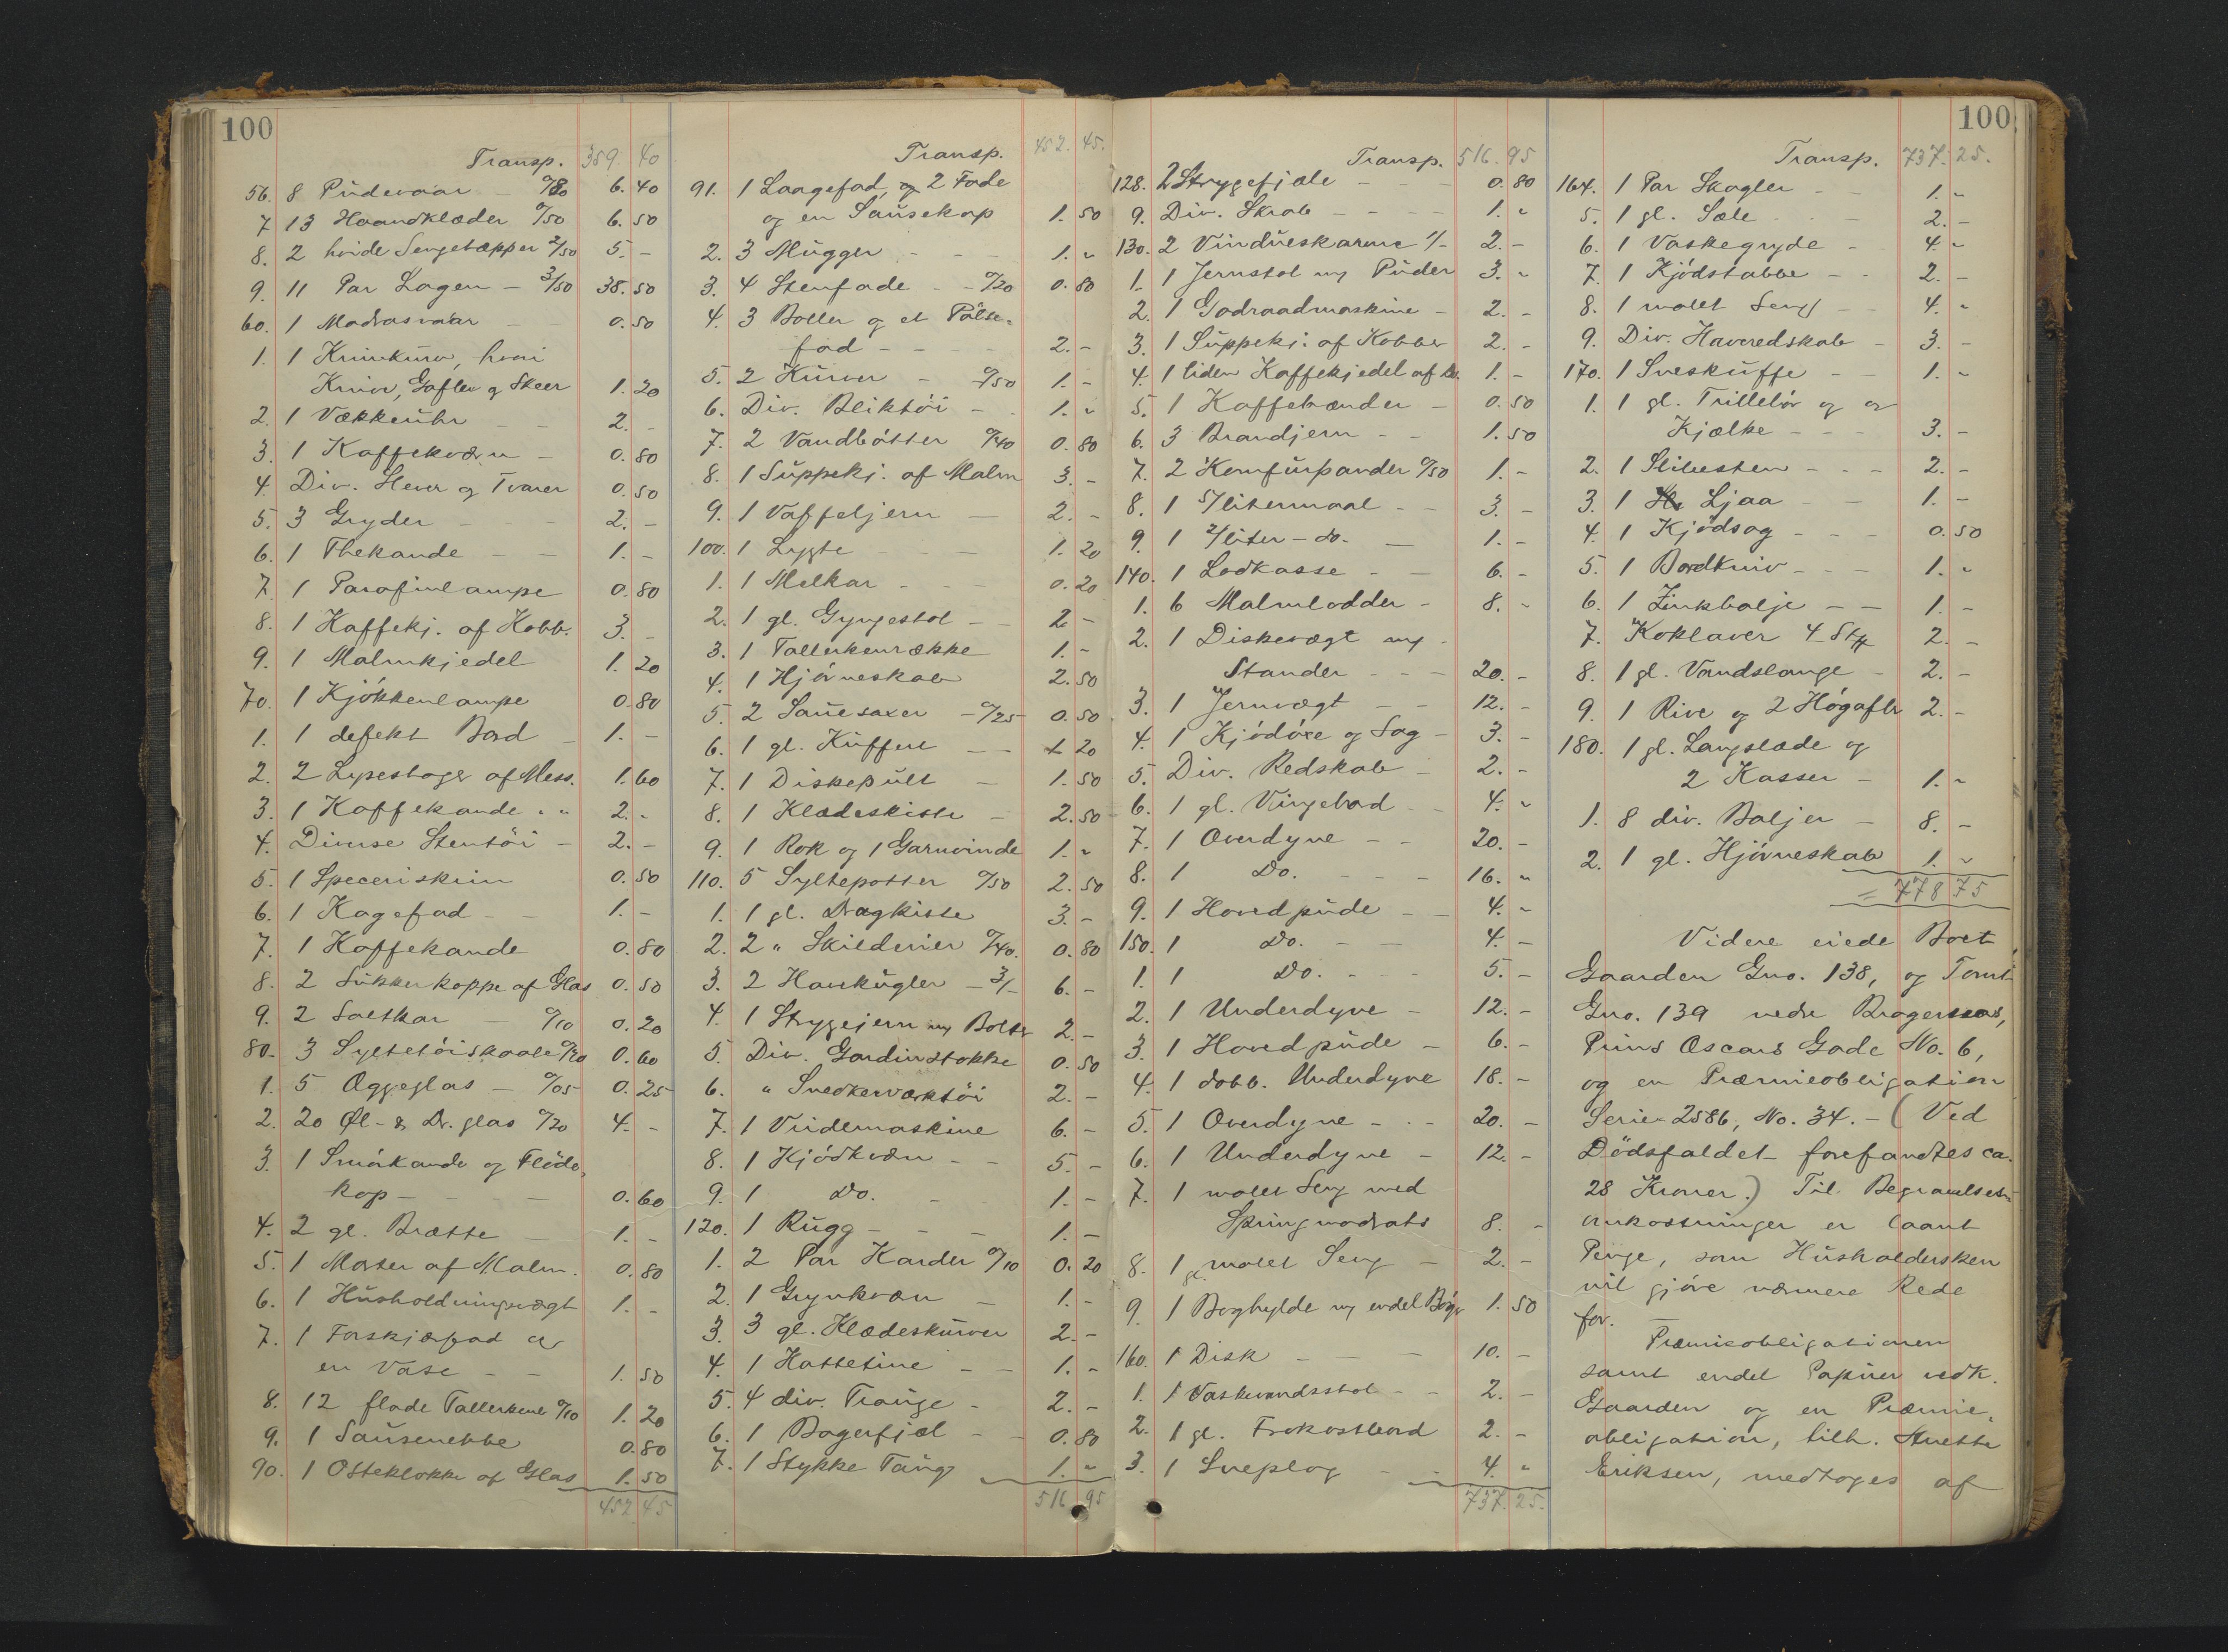 100
Transp. 359. 40
56. 8 Pudevaar 0/80 6. 40
7 13 Haandklæder 0/50 6. 50
8. 2 hvide Sengetæpper 2/50 5. -
9. 11 Par Lagen - 3/50 38. 50
60. 1 Madrasvaar - 0. 50
1. 1 Knivkurv, hvori
Knive, Gafler og Skeer 1. 20
2. 1 Vækkeuhr - - 2. -
3. 1 Kaffekværn - 0. 80
4. Div. Slever og Tvarer 0. 50
5. 3 Gryder - - 2. -
6. 1 Thekande - - 1. -
7. 1 Parafinlampe 0. 80
8. 1 Kaffekj. af Kobb. 3. -
9. 1 Malmkjedel 1. 20
70. 1 Kjøkkenlampe 0. 80
1. 1 defekt Bord - 1. -
2. 2 Lysestager af Mess. 1. 60
3. 1 Kaffekande " " 2. -
4. Diverse Stentöi - 2. -
5. 1 Speceriskrin 0. 50
6. 1 Kagefad - - 1. -
7. 1 Kaffekande 0. 80
8. 2 Sukkerkoppe af Glas 0. 50
9. 2 Saltkar - 0/10 0. 20
80. 3 Syltetöiskaale 0/20 0. 60
1. 5 Æggeglas - 0/05 0. 25
2. 20 Øl- & Dr. glas 0/20 4. -
3. 1 Smörkande og Flöde-
kop - - - - 0. 60
4. 2 gl. Brætte - 1. -
5. 1 Morter af Malm. 0. 80
6. 1 Husholdningsvægt 1. -
7. 1 Forskjærfad og
en Vase - - 1. 50
8. 12 flade Tallerkene 0/10 1. 20
9. 1 Sausenebbe 0. 80
90. 1 Osteklokke af Glas 1. 50
452 45
Transp. 452. 45.
91. 1 Laagefad, og 2 Fade
og en Sausekop 1. 50
2. 3 Mugger - - - 1. "
3. 4 Stenfade - - 0/20 0. 80
4. 3 Boller og et Pölse-
fad - - - - 2. -
5. 2 Kurver - 0/50 1. -
6. Div. Bliktöi - - 1. "
7. 2 Vandbötter 0/40 0. 80
8. 1 Suppekj. af Malm 3. -
9. 1 Vaffeljern - 2. -
100. 1 Lygte - - - 1. 20
1. 1 Melkar - - 0. 20
2. 1 gl. Gyngestol - - 2. -
3. 1 Tallerkenrække 1. -
4. 1 Hjörneskab 2. 50
5. 2 Sauesaxer - 0/25 0. 50
6. 1 gl. Kuffert - - 1. 20
7. 1 Diskepult - 1. 50
8. 1 Klædeskiste - 2. 50
9. 1 Rok og 1 Garnvinde 1. "
110. 5 Syltepotter 0/50 2. 50
1. 1 gl. Dragkiste 3. -
2. 2 " Skilderier 0/40. 0. 80
3. 2 Havekugler - 3/- 6. -
4. 1 Strygejern m/ Bolter 2. -
5. Div. Gardinstokke 0. 50
6. " Snedkerværktöi 2. -
7. 1 Vridemaskine 6. -
8. 1 Kjödkværn - - 5. -
9. 1 Do. - - 1. -
120. 1 Rugg - - - 1. -
1. 2 Par Karder 0/10 0. 20
2. 1 Grynkværn - 1. -
3. 3 gl. Klædeskurver 2. -
4. 1 Hattetine - - 1. -
5. 4 div. Trauge - 2. -
6. 1 Bagerfjæl - - 0. 80
7. 1 Stykke Taug - 1. "
516 95
Transp. 516. 95
128. 2 Strygefjæle - - - 0. 80
9. Div. Skrab - - - - 1. "
130. 2 Vindueskarme 1/- 2. -
1. 1 Jernstol m/ Puder 3. "
2. 1 Godraadmaskine - 2. -
3. 1 Suppekj. af Kobber 2. -
4. 1 liden Kaffekjedel af 1. -
5. 1 Kaffebrænder - 0. 50
6. 3 Brandjern - - 1. 50
7. 2 Komfurpander 0/50 1. -
8. 1 5/litermaal - - 3. -
9. 1 2/liter - do. - 1. -
140. 1 Lodkasse - - 6. -
1. 6 Malmlodder - 8. -
2. 1 Diskevægt m/
Stander - - - 20. -
3. 1 Jernvægt - - 12. -
4. 1 Kjödöxe og Sag - 3. -
5. Div. Redskab - 2. -
6. 1 gl. Vingebord - - 4. "
7. 1 Overdyne - - 20. -
8. 1 Do. - - - 16. "
9. 1 Hovedpude - - 4. "
150. 1 Do. - - 4. -
1. 1 Do. - - - 5. -
2. 1 Underdyne - 12. -
3. 1 Hovedpude - 6. -
4. 1 dobb. Underdyne 18. -
5. 1 Overdyne - - 20. -
6. 1 Underdyne - 12. -
7. 1 malet Seng med
Springmadrats 8. -
8. 1 gl. malet Seng - 2. -
9. 1 Boghylde m/ endel Bøger 1. 50
160. 1 Disk - - - 10. -
1. 1 Vaskevandsstol - - 2. -
2. 1 gl. Frokostbord 2. -
3. 1 Sneplog - - 4. "
737. 25.
100
Transp. 737. 25.
164. 1 Par Skagler - - 1. "
5. 1 gl. Sæle - - - 2. -
6. 1 Vaskegryde - 4. "
7. 1 Kjödstabbe - - 2. -
8. 1 malet Seng - - 4. "
9. Div. Haveredskab - 3. -
170. 1 Sneskuffe - - 1. "
1. 1 gl. Trillebör og en
Kjælke - - - 3. -
2. 1 Slibesten - - - 2. -
3. 1 Ljaa - - 1. -
4. 1 Kjödsag - - - 0. 50
5. 1 Bordkniv - - - 1. "
6. 1 Zinkbalje - - 1. -
7. Koklaver 4 Stk 2. -
8. 1 gl. Vandslange - 2. -
9. 1 Rive og 2 Högafler 2. -
180. 1 gl. Langslæde og
2 Kasser - 1. "
1. 8 div. Baljer - 8. -
2. 1 gl. Hjörneskab 1. "
= 778 75
Videre eiede Boet
Gaarden Gno. 138, og Tomt
Gno. 139 nedre Bragernæs,
Prins Oscars Gade No. 6,
og en Præmieobligation
Serie 2586, No. 34. - (Ved
Dödsfaldet forefandtes ca.
28 Kroner.) Til Begravelses-
omkostninger er laant
Penge, som Husholdersken
vil gjöre nærmere Rede
for.
Præmieobligationen
samt endel Papirer vedk.
Gaarden og en Præmie-
obligation, tilh. Anette
Eriksen, medtoges af